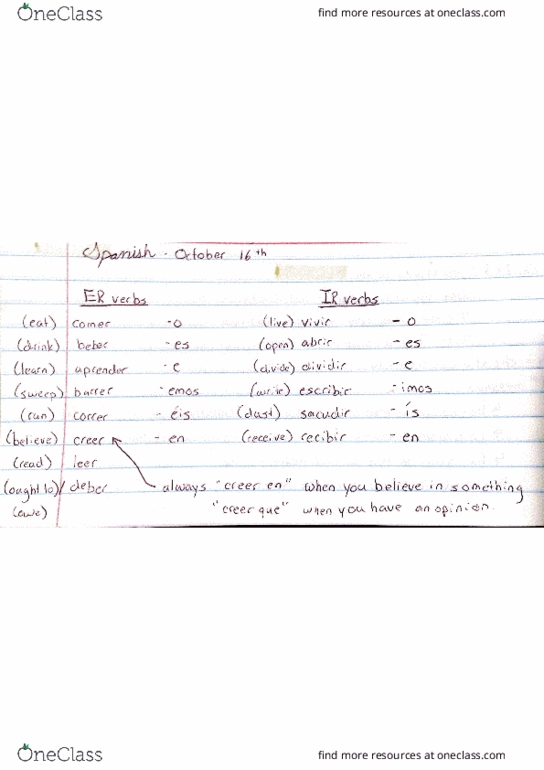 OneClass find more resources at oneclass.com
Spanish - October 16th
ER verbs IR verbs
(eat) comer -o (live) vivir -o
(drink) beber -es (open) abrir -es
(learn) aprender -e (divide) dividir -e
(sweep) barrer -emos (write) escribir -imos
(run) correr -éis (dust) sacudir -ís
(believe) creer -en (receive) recibir -en
(read) leer
(ought to)/ deber always "creer en" when you believe in something
(owe) "creer que" when you have an opinion.
OneClass find more resources at oneclass.com